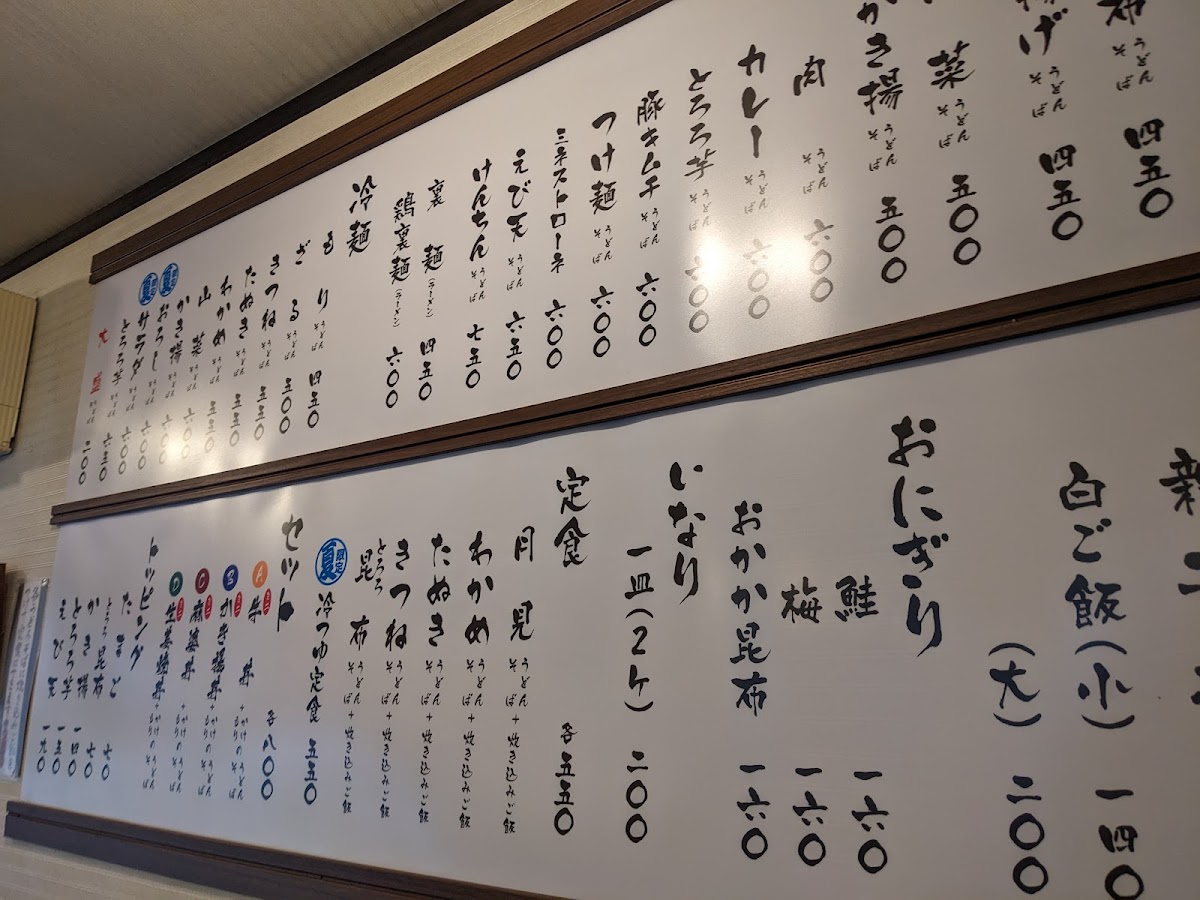 布 うどん そば 四五〇
揚げ うどん そば 四五〇
菜 うどん そば 五〇〇
かき揚 うどん そば 五〇〇
肉 うどん そば 六〇〇
カレー うどん そば 六〇〇
とろろ芋 うどん そば 六〇〇
豚キムチ うどん そば 六〇〇
つけ麺 うどん そば 六〇〇
ミネストローネ 六〇〇
えび天 うどん そば 六五〇
けんちん うどん そば 七五〇
裏 麺(ラーメン) 四五〇
鶏裏麺(ラーメン) 六〇〇
冷麺
もり うどん そば 四五〇
ざる うどん そば 五〇〇
きつね うどん そば 五五〇
たぬき うどん そば 五五〇
わかめ うどん そば 五五〇
山菜 うどん そば 六〇〇
かき揚 うどん そば 六〇〇
限定 夏 おろし うどん そば 六〇〇
限定 夏 サラダ うどん そば 六〇〇
とろろ芋 うどん そば 六五〇
大盛 二〇〇
白ご飯(小) 一四〇
(大) 二〇〇
おにぎり
鮭 一六〇
梅 一六〇
おかか昆布 一六〇
いなり
一皿(2ケ) 二〇〇
定食 各 五五〇
月見 うどん そば +炊き込みご飯
わかめ うどん そば +炊き込みご飯
たぬき うどん そば +炊き込みご飯
きつね うどん そば +炊き込みご飯
とろろ昆布 うどん そば +炊き込みご飯
限定 夏 冷つゆ定食 五五〇
セット 各八〇〇
A ミニ 牛丼 +かけ もり のうどん そば
B ミニ かき揚丼 +かけ もり のうどん そば
C ミニ 麻婆丼 +かけ もり のうどん そば
D ミニ 生姜焼丼 +かけ もり のうどん そば
トッピング
たまご 七〇
とろろ昆布 七〇
かき揚 一四〇
とろろ芋 一五〇
えび天 一九〇